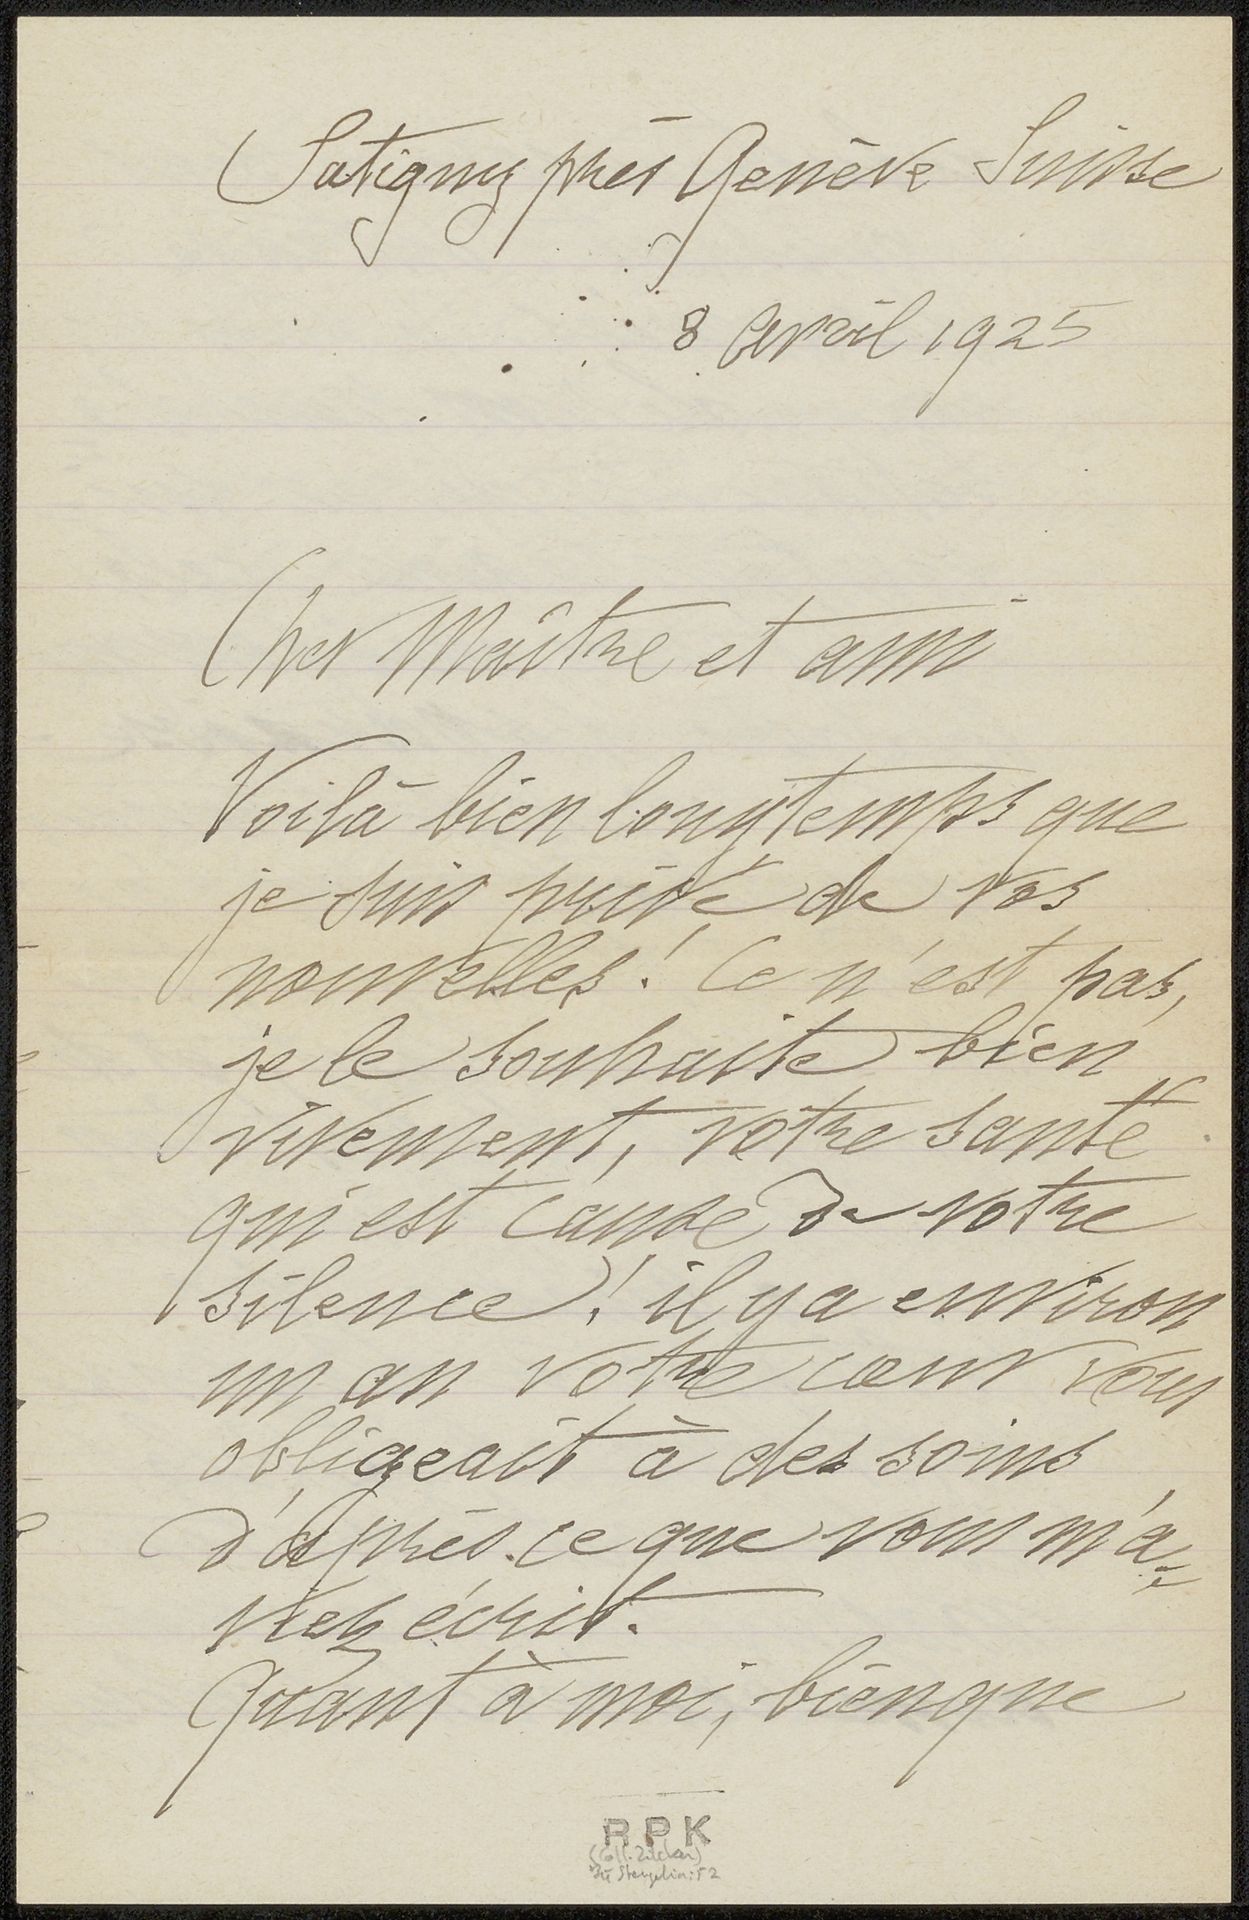 Satigny près Genève Suisse
8 avril 1925
Cher Maître et ami
Voilà bien longtemps que
je suis privé de vos
nouvelles! Ce n'est pas,
je le souhaite bien
vivement, votre santé
qui est cause de votre
silence! il y a environ
un an votre coeur vous
obligeait à des soins
d'après ce que vous m'a-
viez écrit.
Quant à moi, bienque
RPK
(Coll. Zilcken)
Stengelin: 52